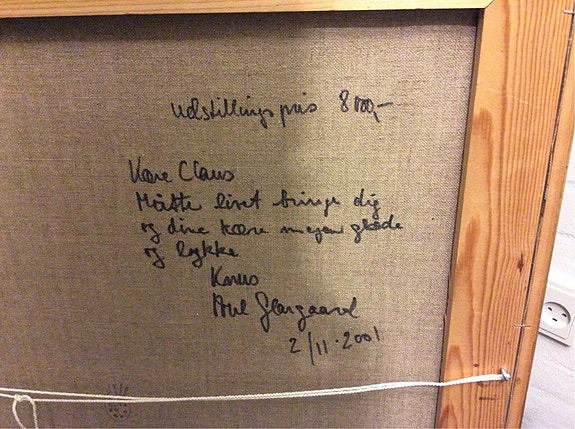 Udstillingspris 8000,-
Kære Claus
Måtte livet bringe dig
og dine kære megen glæde
og lykke
Knus
2/11-2001